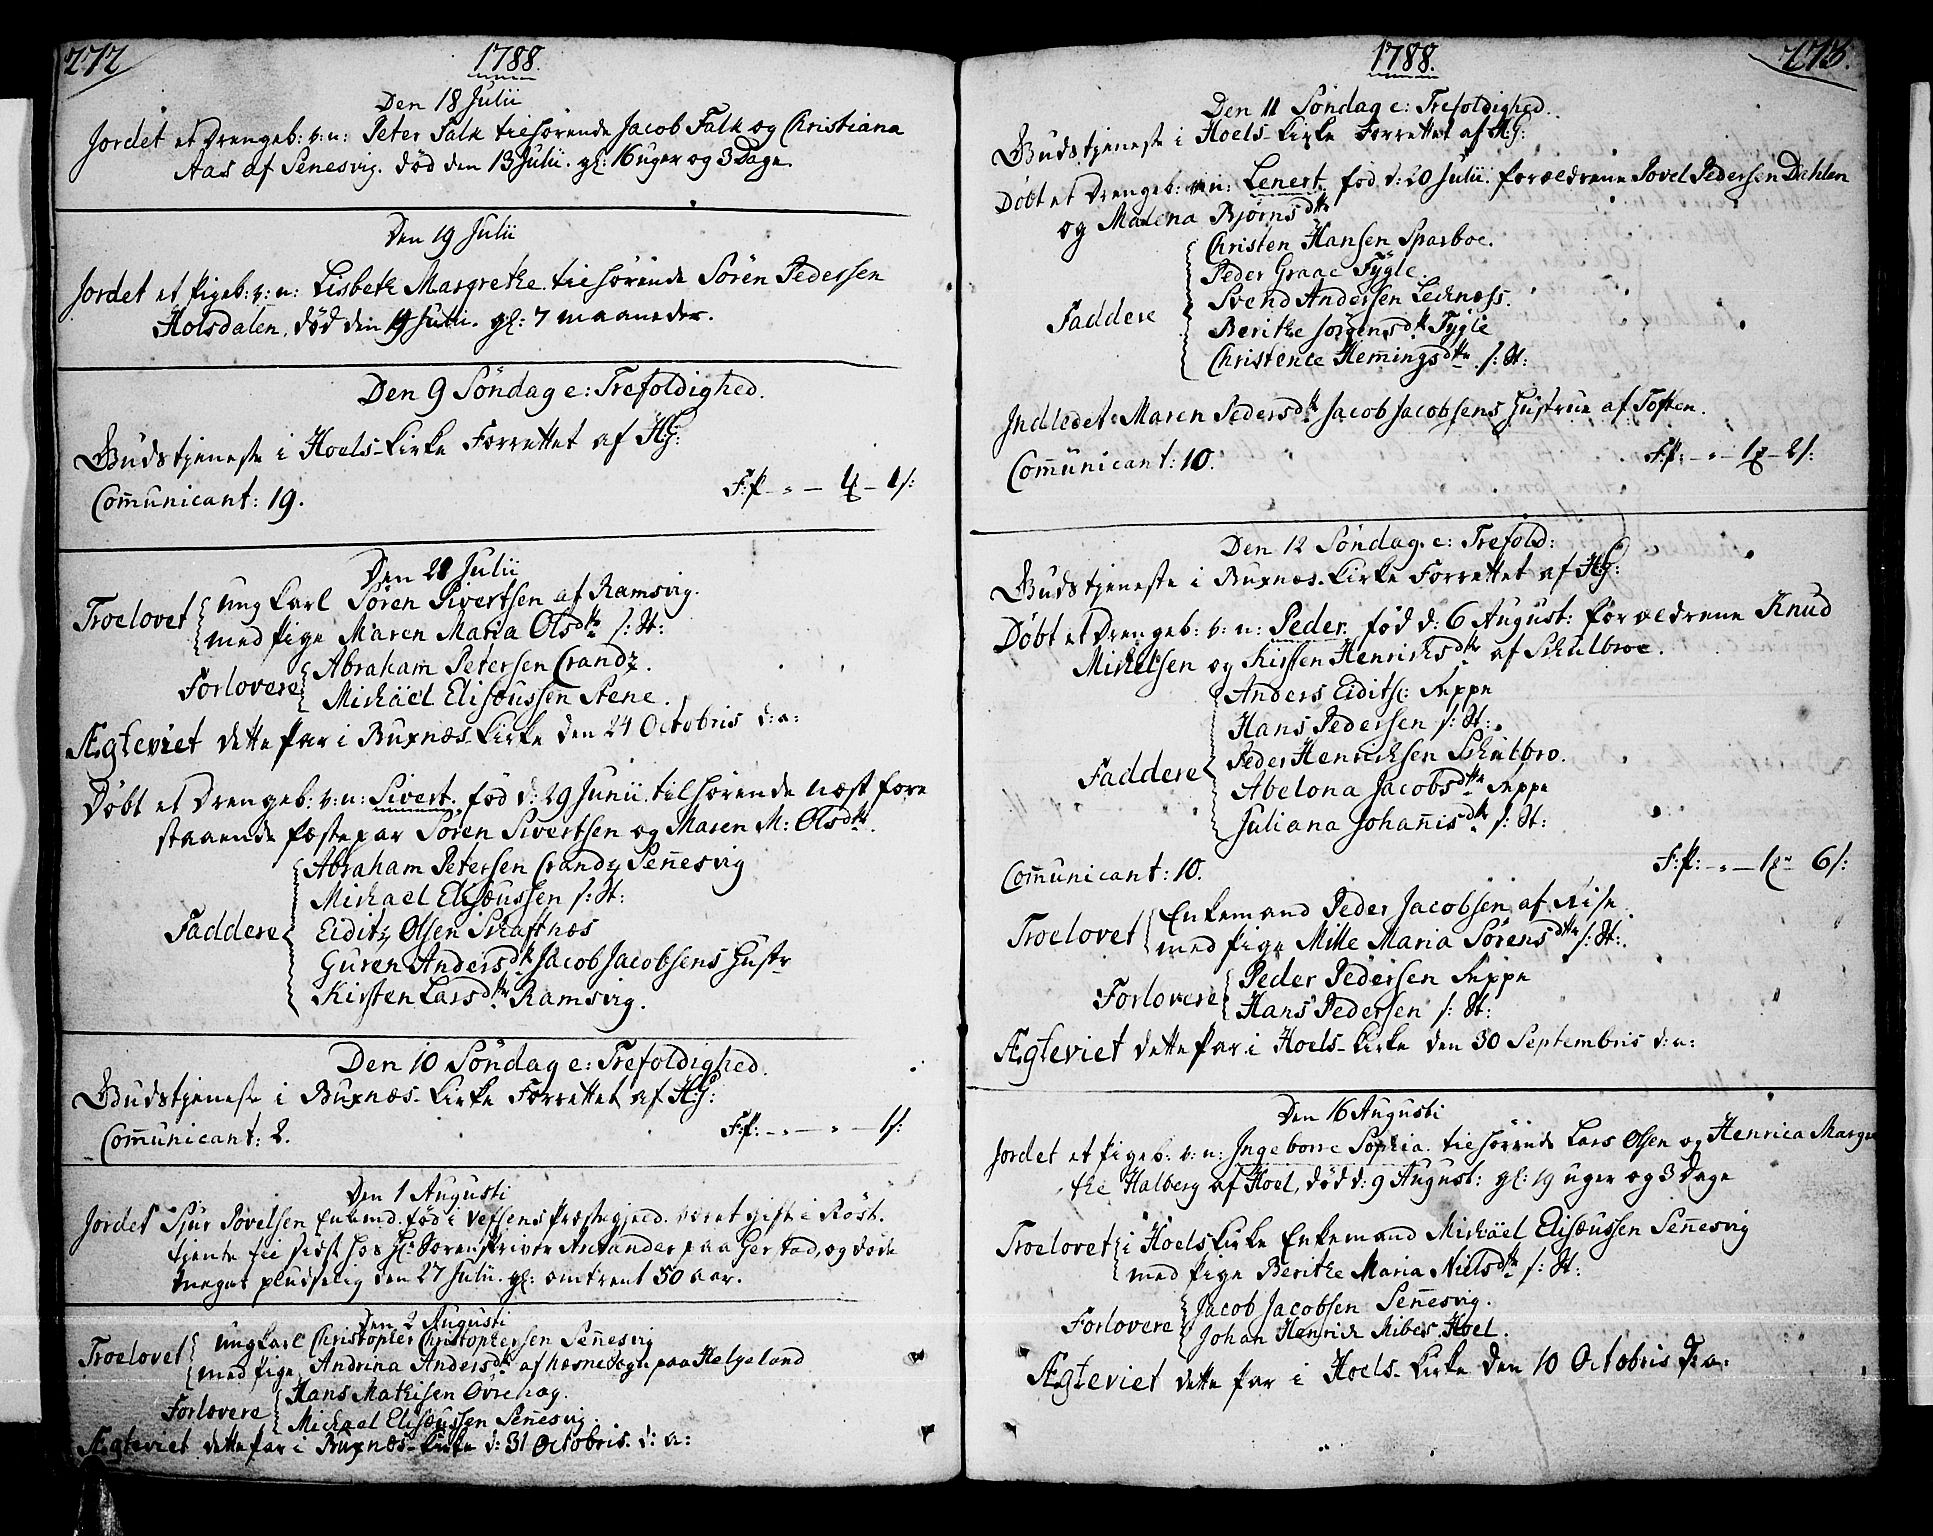 272
1788.
Den 18 Julii
Jordet et Drengeb: v: n: Peter Falk tiehørende Jacob Falk og Christiana
Aas af Senesvig. død den 13 Julii. gl: 16 uger og 3 Dage.
Den 19 Julii
Jordet et Pigeb: v: n: Lisbeth Margrethe tiehørende Sören Pedersen
Holsdalen, død den Julii. gl: 7 maaneder.
Den 9 Söndag e: Trefoldighed.
Gudstjeneste i Hoels-Kirke Forrettet af HG:
Com̄unicant: 19. F:P:
Den 28 Julii
Troelovet ung karl Søren Sivertsen af Ramsvig.
med Pige Maren Maria Olsdttr s: St:
Forlovere Abraham Petersen Crandz.
Michäel Elisæussen Stene.
Ægteviet dette Par i Buxnæs-Kirke den 24 Octobris d: a:
Døbt et Drengeb: v: n: Sivert. fød d: 29 Junii. tilhørende næst fore
staaende Fæstepar Søren Sivertsen og Maren M: Olsdttr.
Faddere Abraham Petersen Crandz Sen̄esvig
Michael Elisæussen s: St:
Eiditz Olsen Skaftnæs
Guren Andersdttr Jacob Jacobsens Hustr
Kirsten Larsdttr Ramsvig.
Den 10 Söndag e: Trefoldighed.
Gudstjeneste i Buxnæs-Kirke Forrettet af HG:
Com̄unicant: 2. F:P: - " - " - 1 s:
Den 1 Augusti
Jordet Sjur Povelsen Enkemd. fød i Vefsens Præstegjeld. været gift i Röst.
tjente til sidst hos Hr Sorenskriver Anfander paa Gerstad, og døde
meget pludselig den 27 Julii. gl: omtrent 50 aar.
Den 2 Augusti
Troelovet ung karl Christopher Christophersen Sen̄esvig
med Pige Andrina Andersdttr af hæsne Sogn paa Helgeland
Forlovere Hans Mathisen Övrehag.
Michael Elisæussen Sen̄esvig.
Ægteviet dette Par i Buxnæs-Kirke d: 31 Octobris. d: a:
1788.
273.
Den 11 Søndag e: Trefoldighed.
Gudstjeneste i Hoels-Kirke Forrettet af HG:
Døbt et Drengeb: v: n: Lenert. fød d: 20 Julii. forældrene Povel Pedersen Dahlen
og Malena Bjørnsdttr
Faddere Christen Hansen Sparboe.
Peder Graae Fygle.
Svend Andersen Lecknæss.
Berithe Jörgensdttr Fygle
Christence Hemingsdttr s: St:
Indledet Maren Pedersdttr Jacob Jacobsens Hustrue af Toften.
Com̄unicant: 10. F:P: - " - 1 - 2 s:
Den 12 Söndag. e: Trefold:
Gudstjeneste i Buxnæs-Kirke Forrettet af HG:
Døbt et Drengeb: v: n: Peder. fød d: 6 August: forældrene Knud
Mickelsen og Kirsten Henrichsdttr af Schulbroe.
Faddere Anders Eiditz: Seppe
Hans Pedersen s: St:
Peder Henricksen Schulbro.
Abelona Jacobsdttr Seppe
Juliana Johan̄isdttr s: St:
Com̄unicant: 10. F:P: - " - 1 - 6 s:
Troelovet Enkemand Peder Jacobsen af Rise
med Pige Mille Maria Sørensdttr s: St:
Forlovere Peder Pedersen Seppe
Hans Pedersen s: St:
Ægteviet dette Par i Hoels-Kirke den 30 Septembris d: a:
Den 16 Augusti
Jordet et Pigeb: v: n: Ingeborre Sophia. tiehørende Lars Olsen og Henrica Margre
the Halberg af Hoel, død d: 9 August: gl: 19 uger og 3 Dage
Troelovet i Hoels Kirke Enkemand Michäel Elisæussen Sen̄esvig
med Pige Berithe Maria Nielsdttr s: St:
Forlovere Jacob Jacobsen Sen̄esvig.
Johan Henrick Ribes. Hoel.
Ægteviet dette Par i Hoels-Kirke den 10 Octobris d: a: